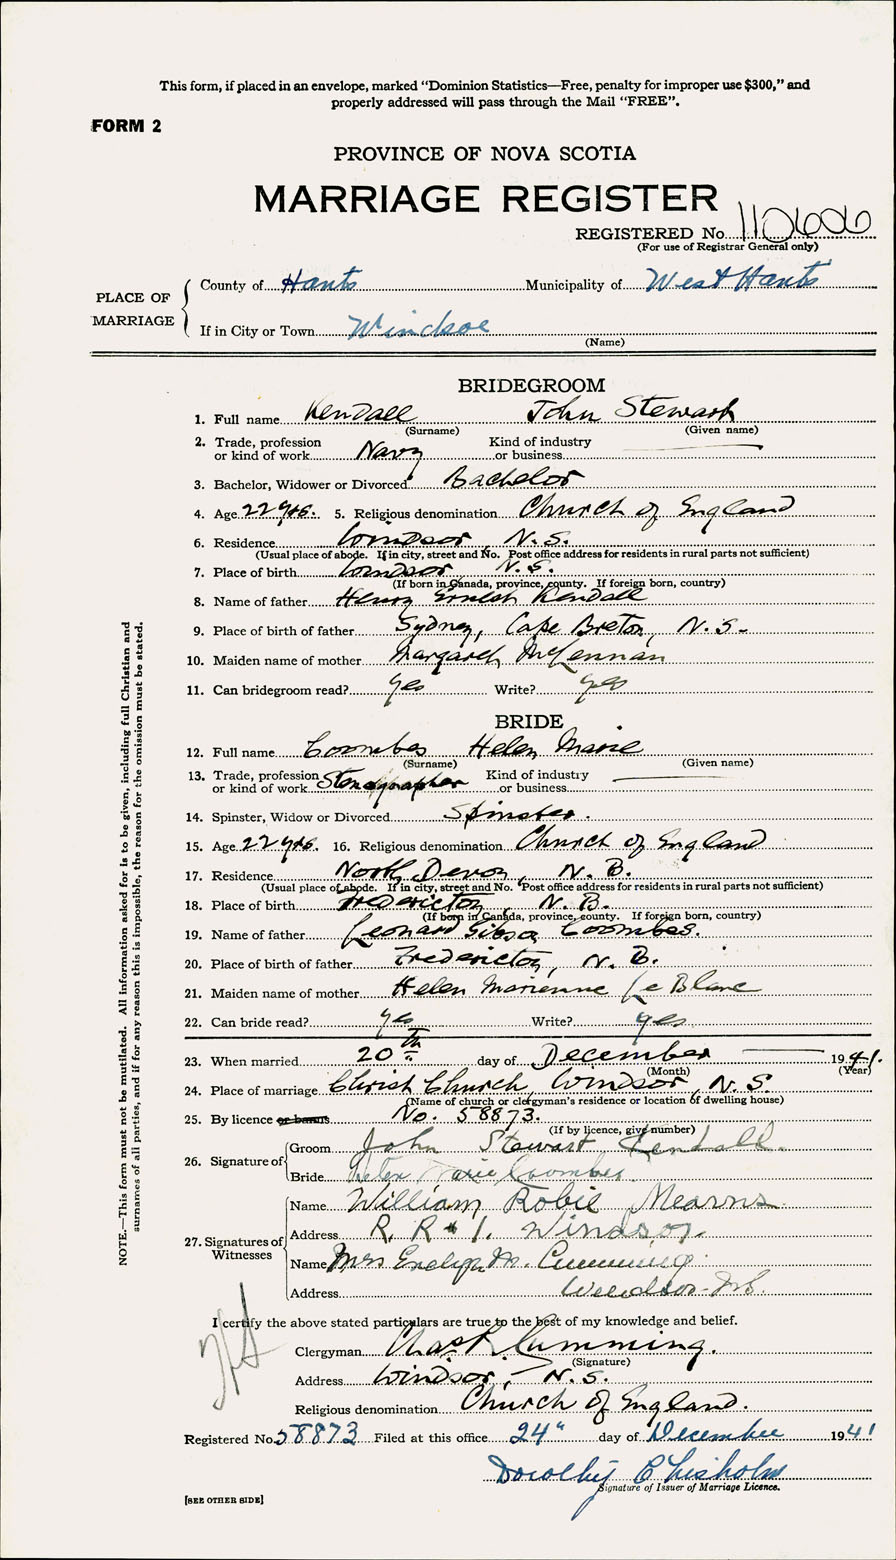 This form, if placed in an envelope, marked “Dominion Statistics—Free, penalty for improper use $300,” and
properly addressed will pass through the Mail “FREE”.
FORM 2
PROVINCE OF NOVA SCOTIA
MARRIAGE REGISTER
REGISTERED No. 110606
(For use of Registrar General only)
PLACE OF MARRIAGE
County of Hants Municipality of West Hants
If in City or Town Windsor
(Name)
BRIDEGROOM
1. Full name Kendall John Stewart
(Surname) (Given name)
2. Trade, profession or kind of work Navy Kind of industry or business
3. Bachelor, Widower or Divorced Bachelor
4. Age 22 yrs. 5. Religious denomination Church of England
6. Residence Windsor, N.S.
(Usual place of abode. If in city, street and No. Post office address for residents in rural parts not sufficient)
7. Place of birth Windsor N.S.
(If born in Canada, province, county. If foreign born, country)
8. Name of father Henry Ernest Kendall
9. Place of birth of father Sydney, Cape Breton, N.S.
10. Maiden name of mother Margaret McLennan
11. Can bridegroom read? yes Write? yes
BRIDE
12. Full name Coombes Helen Marie
(Surname) (Given name)
13. Trade, profession or kind of work Stenographer Kind of industry or business
14. Spinster, Widow or Divorced Spinster.
15. Age 22 yrs. 16. Religious denomination Church of England
17. Residence North Devon, N.B.
(Usual place of abode. If in city, street and No. Post office address for residents in rural parts not sufficient)
18. Place of birth Fredericton, N.B.
(If born in Canada, province, county. If foreign born, country)
19. Name of father Leonard Gibson Coombes.
20. Place of birth of father Fredericton, N.B.
21. Maiden name of mother Helen Marienne Le Blanc
22. Can bride read? yes Write? yes
23. When married 20th day of December 1941.
(Month) (Year)
24. Place of marriage Christ Church, Windsor, N.S.
(Name of church or clergyman's residence or location of dwelling house)
25. By licence or banns No. 58873.
(If by licence, give number)
26. Signature of
Groom John Stewart Kendall.
Bride Helen Marie Coombes.
27. Signatures of Witnesses
Name William Robie Mearns
Address R. R #1. Windsor.
Name Mrs Evelyn M. Cumming
Address Windsor N.S.
I certify the above stated particulars are true to the best of my knowledge and belief.
Clergyman Chas R. Cumming.
(Signature)
Address Windsor, N.S.
Religious denomination Church of England.
Registered No. 58873 Filed at this office 24" day of December 1941
Dorothy Chisholm
Signature of Issuer of Marriage Licence.
[SEE OTHER SIDE]
NOTE.—This form must not be mutilated. All information asked for is to be given, including full Christian and
surnames of all parties, and if for any reason this is impossible, the reason for the omission must be stated.